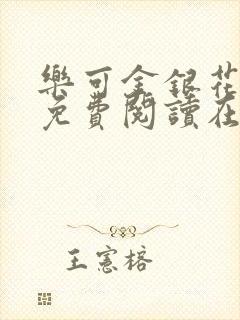 樂可金銀花
免費閱讀在
王憲榕